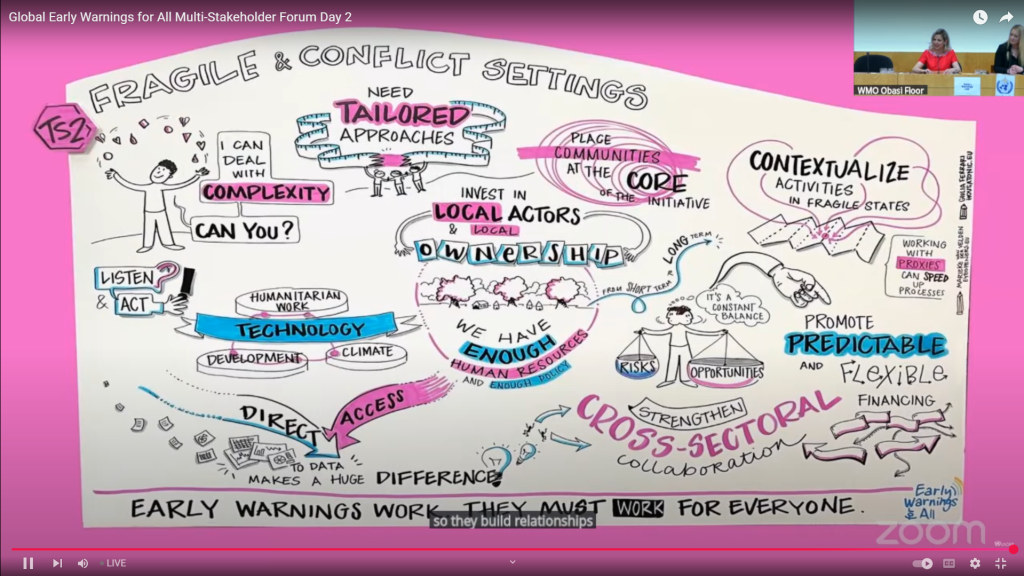 Global Early Warnings for All Multi-Stakeholder Forum Day 2
WMO Obasi Floor
FRAGILE & CONFLICT SETTINGS
TS2
I CAN
DEAL
WITH
COMPLEXITY
CAN YOU?
NEED
TAILORED
APPROACHES
PLACE
COMMUNITIES
AT THE CORE
OF THE INITIATIVE
CONTEXTUALIZE
ACTIVITIES
IN FRAGILE STATES
WORKING
WITH
PROXIES
CAN SPEED
UP
PROCESSES
INVEST IN
LOCAL ACTORS
& LOCAL
OWNERSHIP
FROM SHORT TERM 2 LONG TERM
LISTEN?
& ACT!
HUMANITARIAN
WORK
TECHNOLOGY
DEVELOPMENT
CLIMATE
WE HAVE
ENOUGH
HUMAN RESOURCES
AND ENOUGH POLICY
IT'S A
CONSTANT
BALANCE
RISKS
OPPORTUNITIES
PROMOTE
PREDICTABLE
AND FLEXIBLE
FINANCING
DIRECT ACCESS
TO DATA
MAKES A HUGE DIFFERENCE
STRENGTHEN
CROSS-SECTORAL
collaboration
EARLY WARNINGS WORK. THEY MUST WORK FOR EVERYONE.
Early
Warnings
& All
so they build relationships
zoom
LIVE